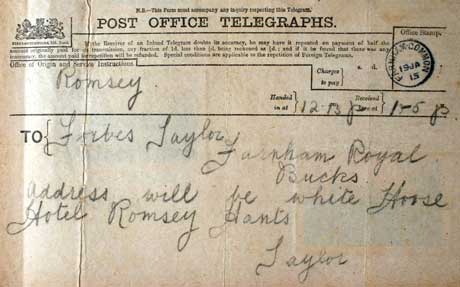 N.B.—This Form must accompany any inquiry respecting this Telegram.
POST OFFICE TELEGRAPHS.
If the Receiver of an Inland Telegram doubts its accuracy, he may have it repeated on payment of half the
amount originally paid for its transmission, any fraction of 1d. less than ½d. being reckoned as ½d.; and if it be found that there was any
inaccuracy, the amount paid for repetition will be refunded. Special conditions are applicable to the repetition of Foreign Telegrams.
Office Stamp.
FARNHAM COMMON
19 JA
15
Office of Origin and Service Instructions.
Romsey
Charges
to pay
s. d.
Handed
in at
12-13
Received
here at
1-5
TO
Forbes Taylor
Farnham Royal
Bucks
Address will be White Hoose
Hotel Romsey Hants
Taylor